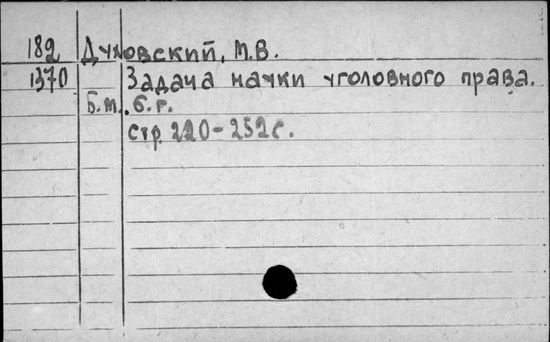 182 Духовский, М.В.
1370 Задача науки уголовного права.
Б.м., б.г.
Стр. 220-252 с.